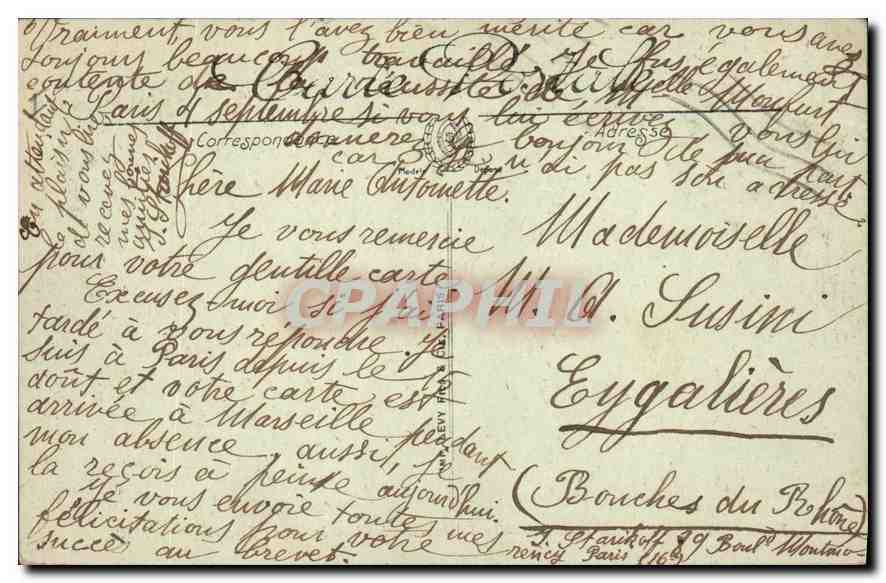 Chère Marie Antoinette.
Je vous remercie
pour votre gentille carte
Excusez-moi si j'ai
tardé à vous répondre. Je
suis à Paris depuis le 5
août et votre carte est
arrivée à Marseille pendant
mon absence, aussi, je
la reçois à peine aujourd'hui.
Je vous envoie toutes mes
félicitations pour votre
succès au brevet.
Vraiment, vous l'avez bien mérité car vous avez
toujours beaucoup travaillé. Je fus également
contente de la réussite de Melle
Paris 4 septembre si vous lui écrivez vous lui
donnerez bonjour de ma part
car je n'ai pas son adresse.
En attendant
le plaisir
de vous lire
recevez
mes bonnes
amitiés
J. Starikoff
Carte Postale
Correspondance
Adresse
Modèle Déposé
Mademoiselle
M. A. Susini
Eygalières
(Bouches du Rhône)
J. Starikoff 29 Bould Montmo-
rency Paris (16e)
IMP. LEVY FILS & CIE. PARIS
CPAPHIL